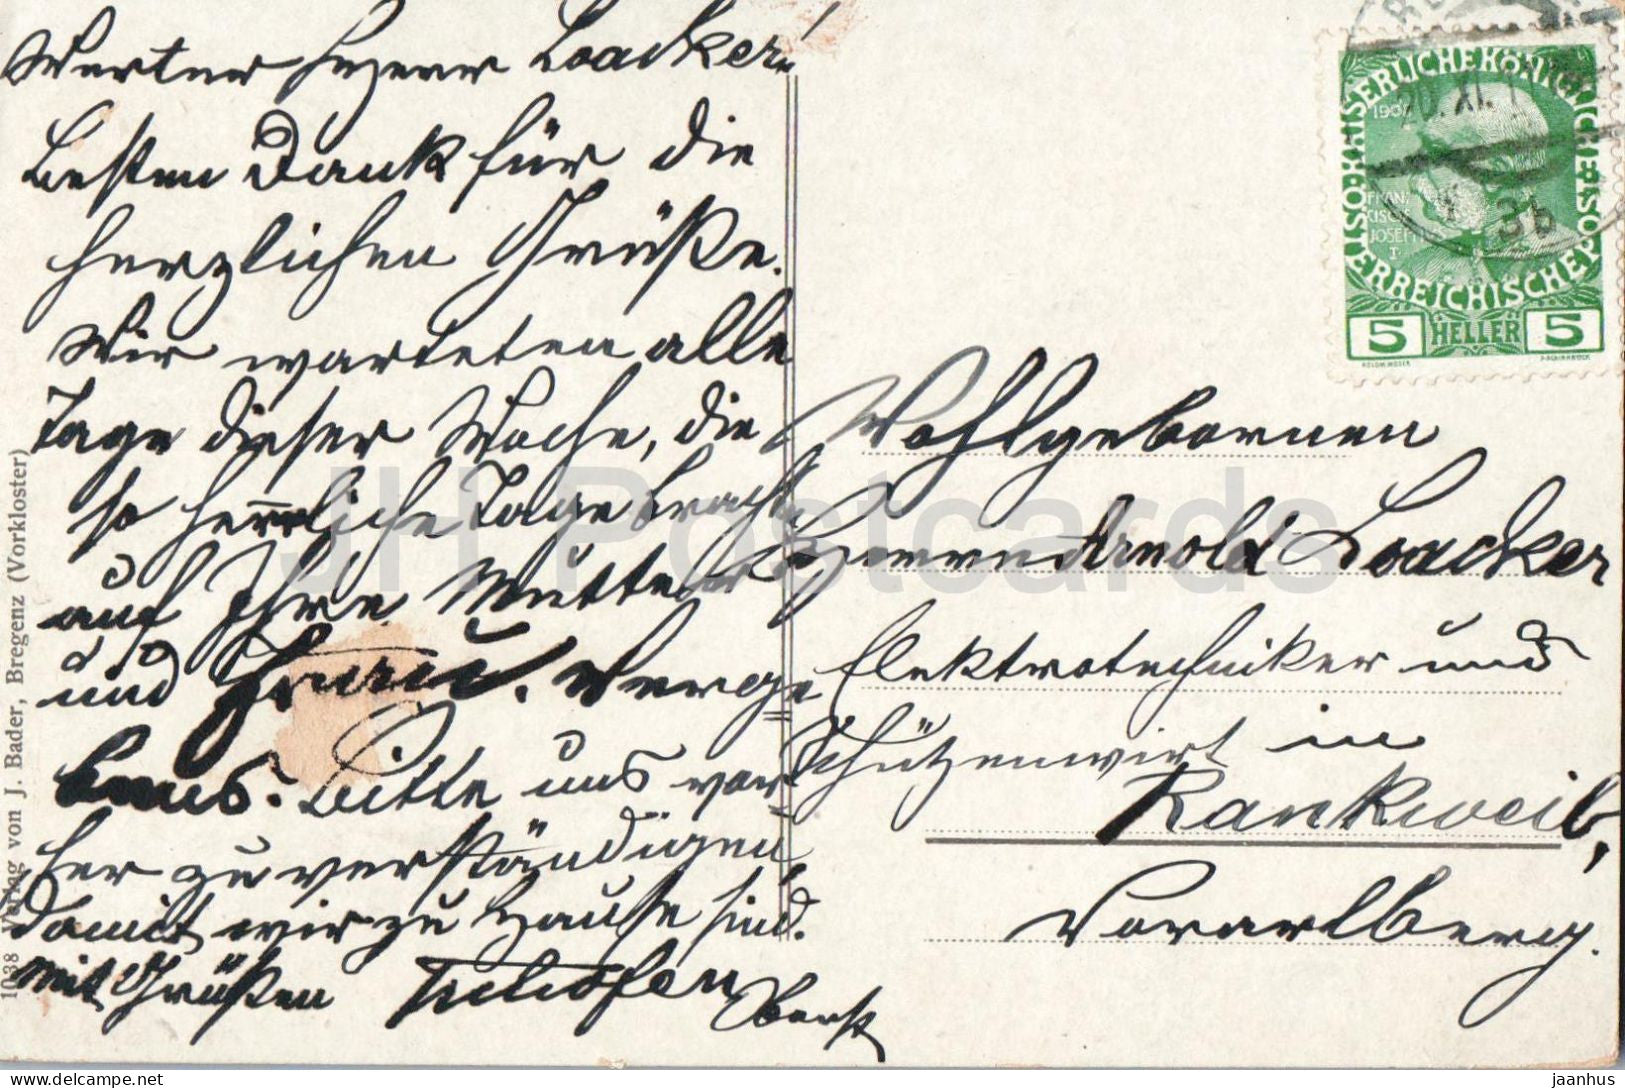 Werter Herr Loacker!
Besten Dank für die
herzlichen Grüße.
Wir warteten alle
Tage dieser Woche, die
so herrliche Tage brachte
auf Ihre Mutter
und Frau. Verge-
bens. Bitte uns vor-
her zu verständigen,
damit wir zu Hause sind.
Mit Grüßen
Oberst
Wohlgebornen
Herrn Arnold Loacker
Elektrotechniker und
Schützenwirt in
Rankweil,
Vorarlberg.
1038 Verlag von J. Bader, Bregenz (Vorkloster)
KAISERLICHE KÖNIGLICHE ÖSTERREICHISCHE POST
FRANZISCUS JOSEPH I
5 HELLER 5
20. XI. 1
3b
JH Postcards
delcampe.net
jaanhus